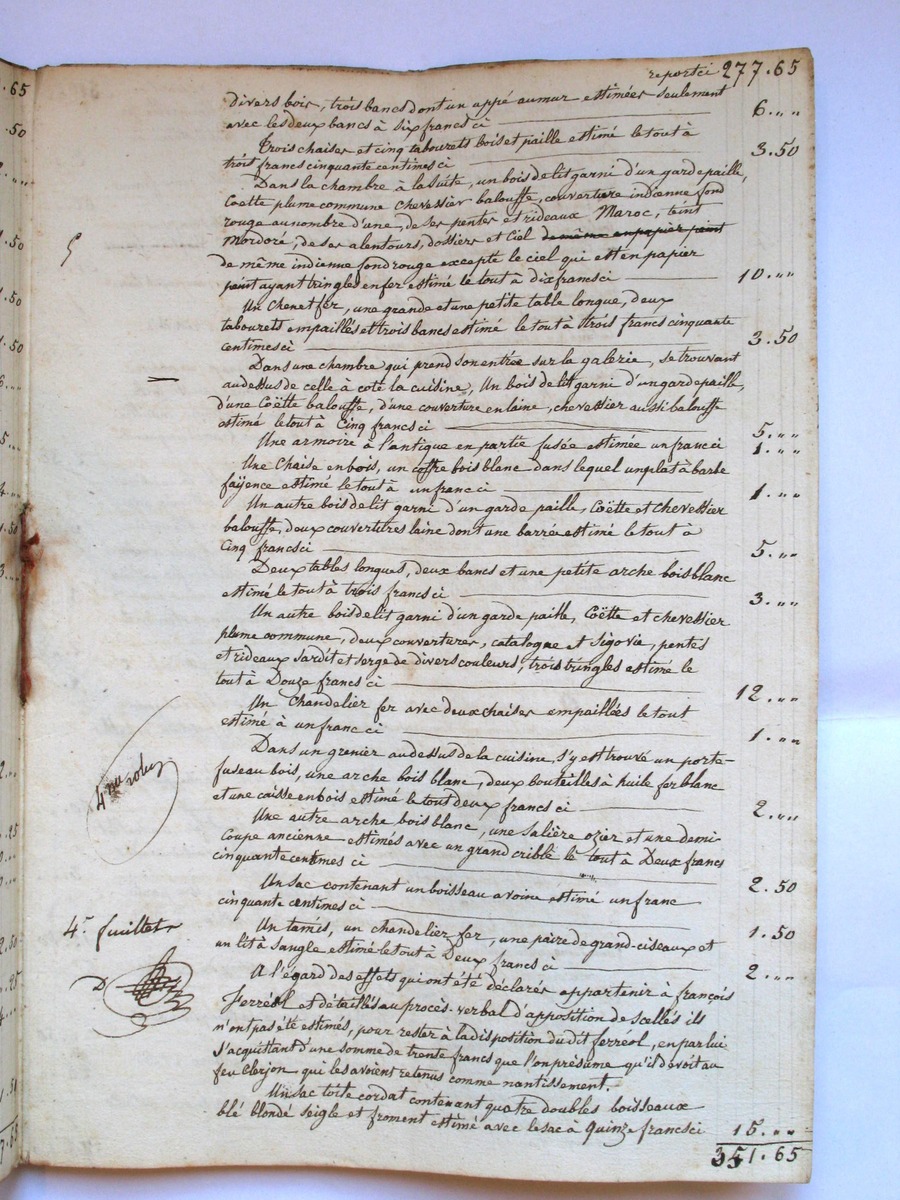 reporté ci 277.65
divers bois, trois bancs dont un appé au mur estimées seulement
avec les deux bancs à six francs ci 6.""
Trois chaises et cinq tabourets bois et paille estimé le tout à
trois francs cinquante centimes ci 3.50
Dans la chambre à la suite, un bois de lit garni d'un garde paille,
Coëtte plume commune chevessier balouffe, couverture indienne fond
rouge au nombre d'une, de ses pentes et rideaux Maroc, teint
mordoré, de ses alentours, dossiers et Ciel de même en papier peint
de même indienne fond rouge excepté le ciel qui est en papier
peint ayant tringles en fer estimé le tout à dix francs ci 10.""
Un Chenet fer, une grande et une petite table longue, deux
tabourets empaillés et trois bancs estimé le tout à trois francs cinquante
centimes ci 3.50
Dans une chambre qui prend son entrée sur la galerie, se trouvant
au dessus de celle à coté la cuisine, Un bois de lit garni d'un garde paille,
d'une Coëtte balouffe, d'une couverture en laine, chevessier aussi balouffe
estimé le tout à Cinq francs ci 5.""
Une armoire à l'antique en partie fusée estimée un franc ci 1.""
Une Chaise en bois, un coffre bois blanc dans lequel un plat à barbe
fayence estimé le tout à un franc ci 1.""
Un autre bois de lit garni d'un garde paille, Coëtte et chevessier
balouffe, deux couvertures laine dont une barrée estimé le tout à
Cinq francs ci 5.""
Deux tables longues, deux bancs et une petite arche bois blanc
estimé le tout à trois francs ci 3.""
Un autre bois de lit garni d'un garde paille, Coëtte et chevessier
plume commune, deux couvertures, catalogne et Sigovie, pentes
et rideaux sardit et serge de divers couleurs, trois tringles estimé le
tout à Douze francs ci 12.""
Un Chandelier fer avec deux chaises empaillées le tout
estimé à un franc ci 1.""
Dans un grenier au dessus de la cuisine, s'y est trouvé un porte-
fuseau bois, une arche bois blanc, deux bouteilles à huile fer blanc
et une caisse en bois estimé le tout deux francs ci 2.""
4me
Une autre arche bois blanc, une salière ozier et une demi-
Coupe ancienne estimés avec un grand crible le tout à Deux francs
cinquante centimes ci 2.50
Un sac contenant un boisseau avoine estimé un franc
cinquante centimes ci 1.50
4e. fuillet
Un tamis, un chandelier fer, une paire de grand-ciseaux et
un lit à sangle estimé le tout à Deux francs ci 2.""
A l'égard des effets qui ont été déclarés appartenir à françois
Ferréol et détaillés au procès-verbal d'apposition de scellés ils
n'ont pas été estimés, pour rester à la disposition du dit ferréol, en par lui
s'acquittant d'une somme de trente francs que l'on présume qu'il devoit au
feu Clerjon qui les avoient retenus comme nantissement.
Un sac toile cordat contenant quatre doubles boisseaux
blé blondé seigle et froment estimé avec le sac à Quinze francs ci 15.""
351.65